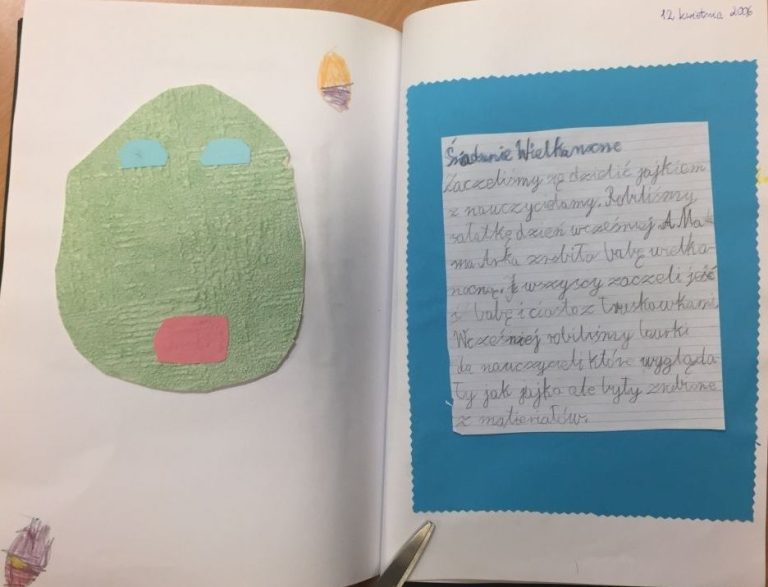 12 kwietnia 2006
Śniadanie Wielkanocne
Zaczeliśmy się dzielić jajkiem
z nauczycielamy. Robiliśmy
sałatkę dzień wcześniej. A
ma Arka zrobiła babę wielka-
nocną. I wszyscy zaczeli jeść
i babę i ciasto z truskawkami.
Wcześniej robiliśmy laurki
dla nauczycieli które wygląda
ły jak jajka ale były zrobione
z materiałów.